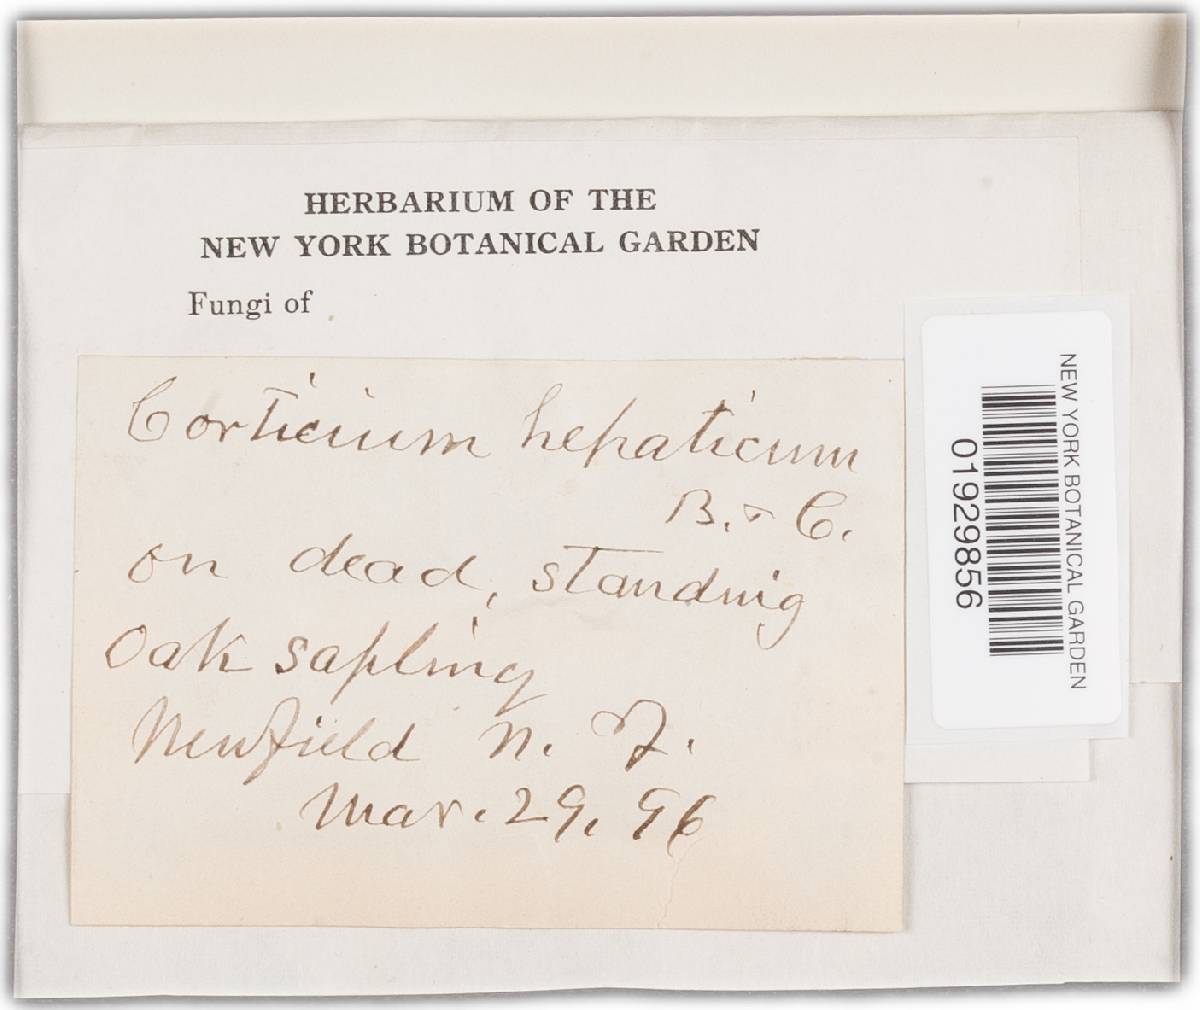 HERBARIUM OF THE
NEW YORK BOTANICAL GARDEN
Fungi of
Corticium hepaticum
B. & C.
on dead, standing
Oak sapling
Newfield N. J.
Mar. 29, 96
NEW YORK BOTANICAL GARDEN
01929856